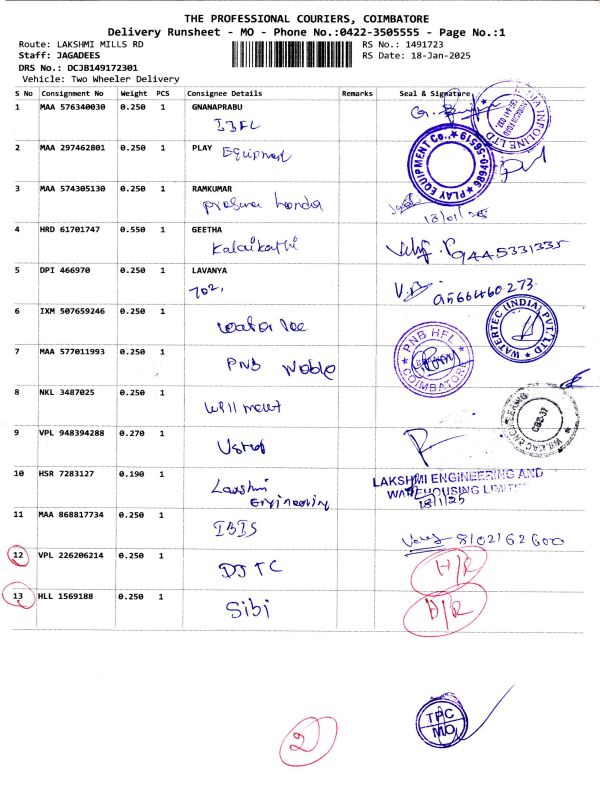 THE PROFESSIONAL COURIERS, COIMBATORE
Delivery Runsheet - MO - Phone No.:0422-3505555 - Page No.:1
Route: LAKSHMI MILLS RD
RS No.: 1491723
Staff: JAGADEES
RS Date: 18-Jan-2025
DRS No.: DCJB149172301
Vehicle: Two Wheeler Delivery
S No Consignment No Weight PCS Consignee Details Remarks Seal & Signature
1 MAA 576340030 0.250 1 GNANAPRABU
2 MAA 297462801 0.250 1 PLAY
Equipment
PLAY EQUIPMENT Co.,
3 MAA 574305130 0.250 1 RAMKUMAR
honda
18/01/25
4 HRD 61701747 0.550 1 GEETHA
Kalaikathi
9445331335
5 DPI 466970 0.250 1 LAVANYA
702,
9566460273
6 IXM 507659246 0.250 1
WATERTEC (INDIA) PVT. LTD
7 MAA 577011993 0.250 1
PNB Noble
PNB HFL
COIMBATORE
8 NKL 3487025 0.250 1
9 VPL 948394288 0.270 1
10 HSR 7283127 0.190 1
Lakshmi
Engineering
LAKSHMI ENGINEERING AND
WAREHOUSING LIMITED
18/1/25
11 MAA 868817734 0.250 1
IBIS
8102162600
12 VPL 226206214 0.250 1
DJTC
13 HLL 1569188 0.250 1
Sibi
D/R
2
TPC
MO